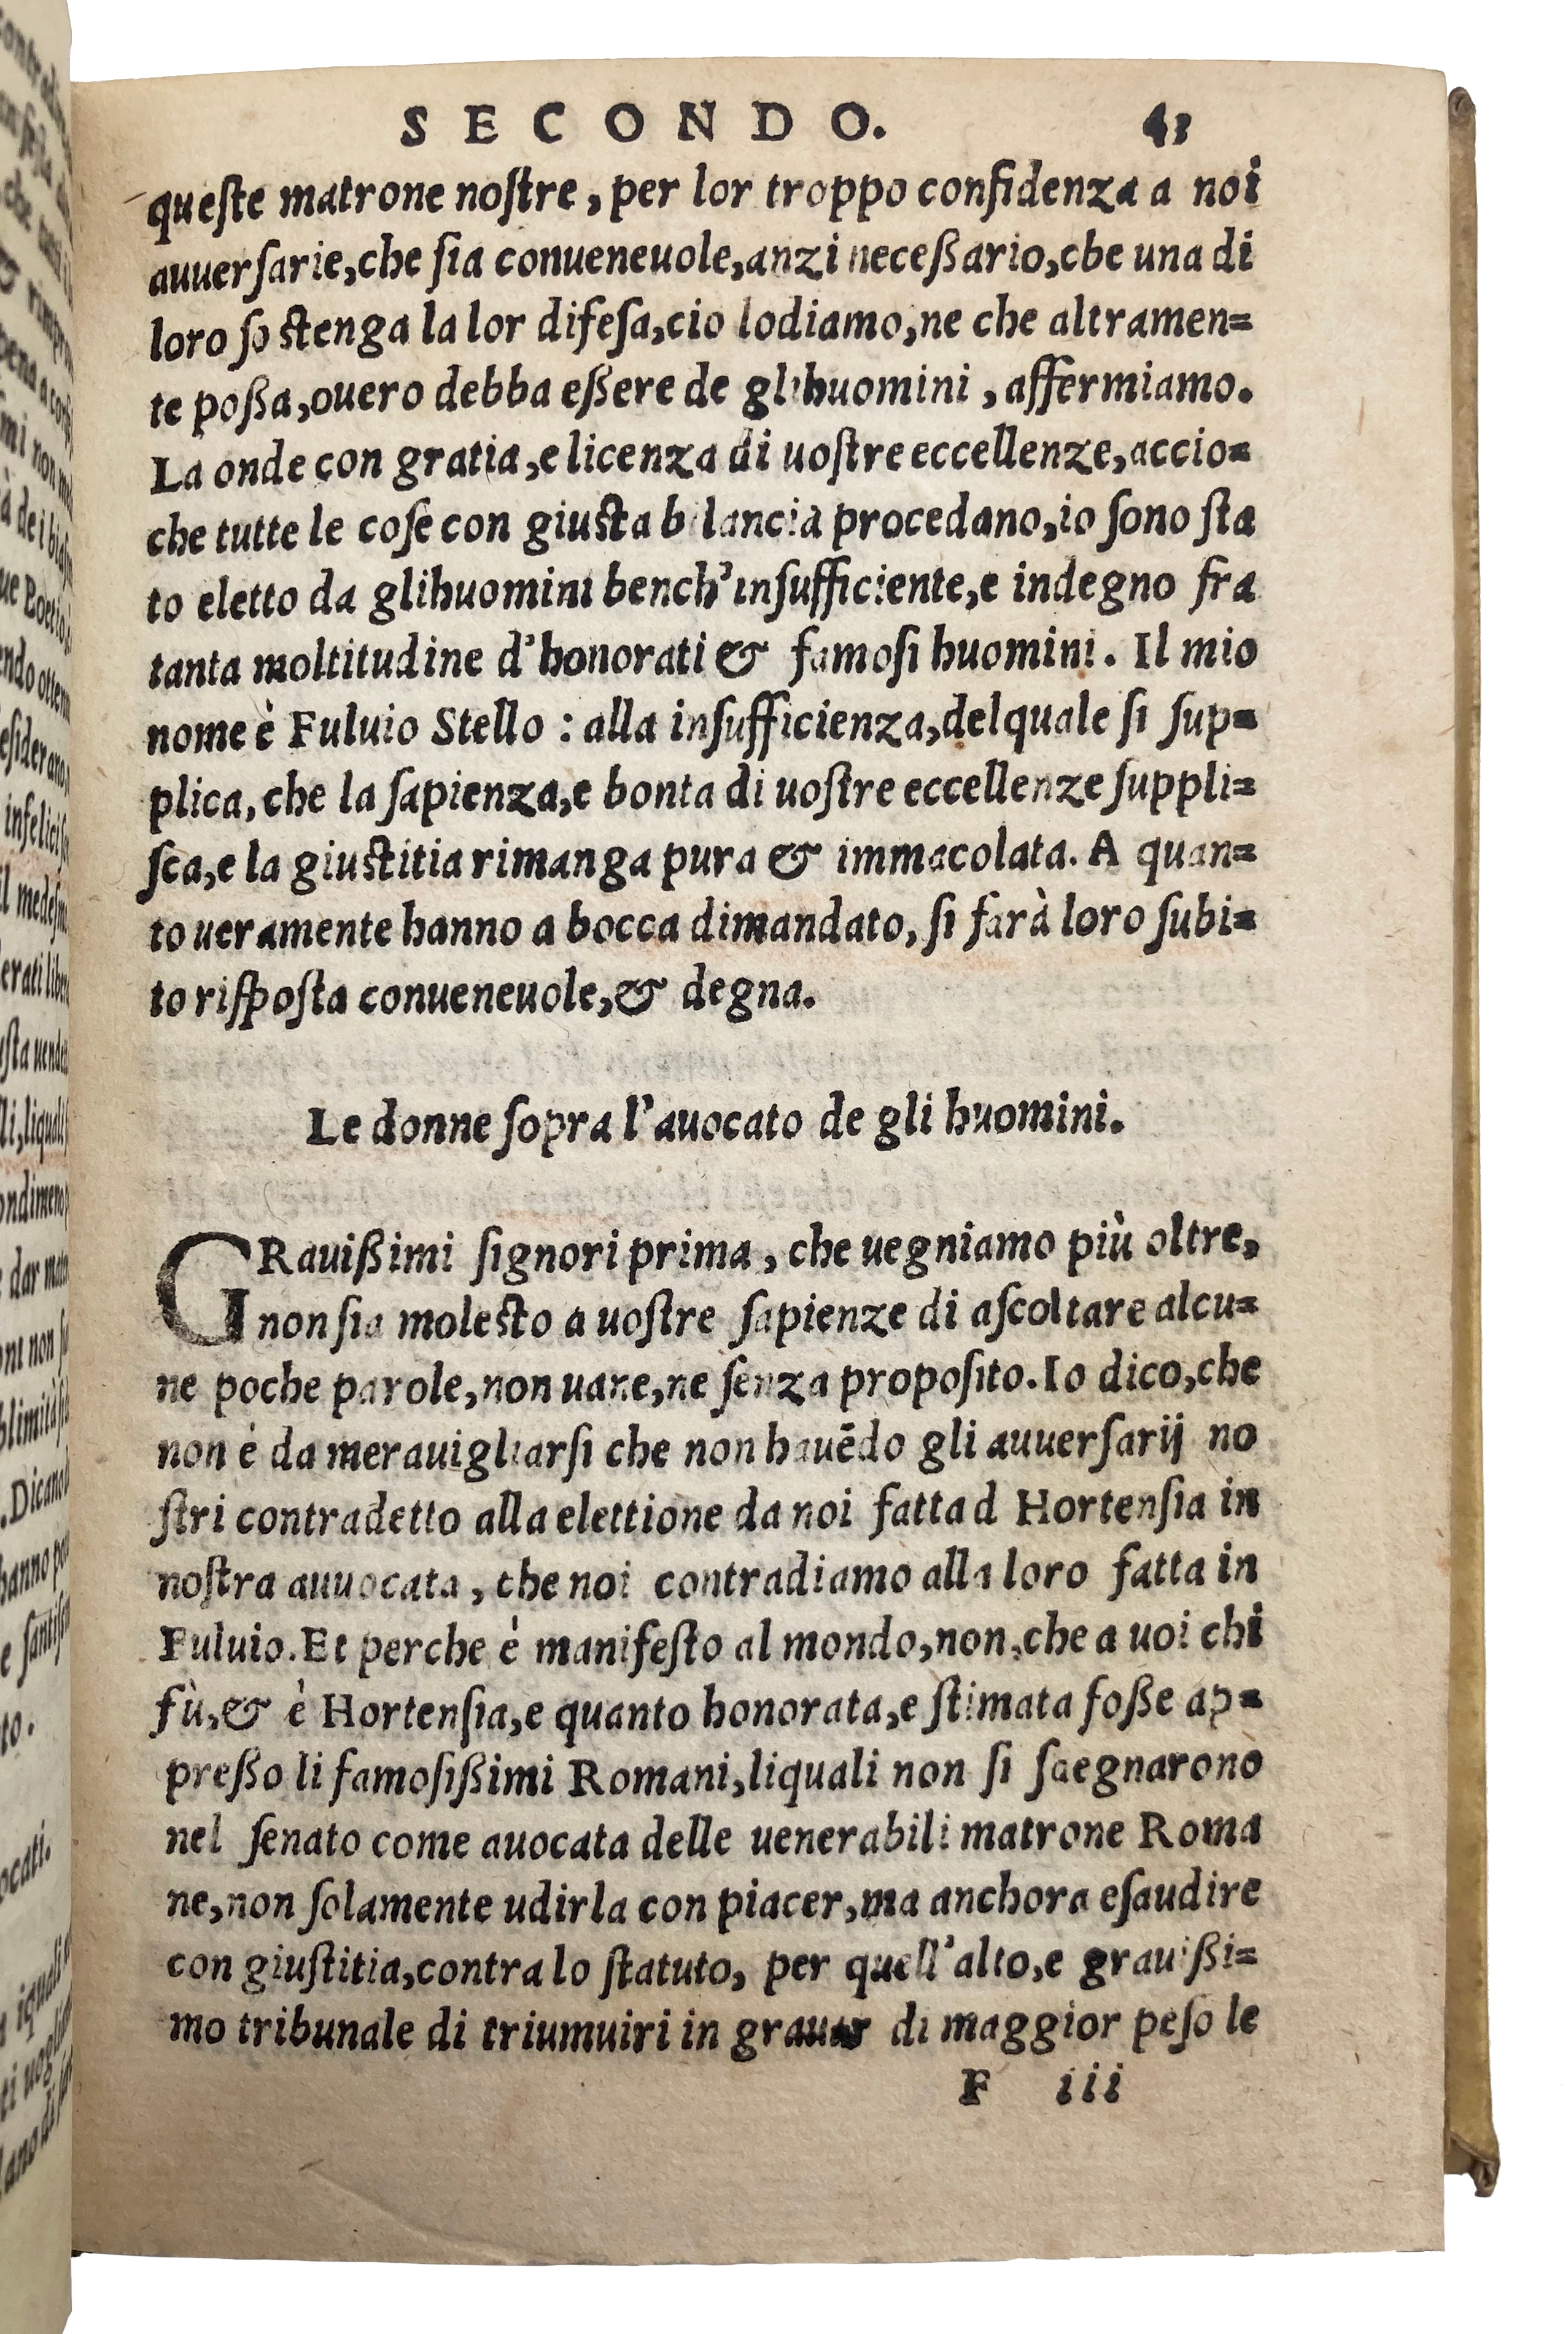 SECONDO. 43
queſte matrone noſtre, per lor troppo confidenza a noi
auuerſarie,che ſia conueneuole,anzi neceßario,cbe una di
loro ſoſtenga la lor difeſa,cio lodiamo,ne che altramen=
te poßa,ouero debba eßere de glihuomini, affermiamo.
La onde con gratia,e licenza di uoſtre eccellenze,accio=
che tutte le coſe con giuſta bilancia procedano,io ſono ſta
to eletto da glihuomini bench'inſufficiente,e indegno fra
tanta moltitudine d'honorati & famoſi huomini. Il mio
nome è Fuluio Stello : alla inſufficienza,delquale ſi ſup=
plica, che la ſapienza,e bonta di uoſtre eccellenze ſuppli=
ſca,e la giuſtitia rimanga pura & immacolata. A quan=
to ueramente hanno a bocca dimandato, ſi farà loro ſubi=
to riſpoſta conueneuole,& degna.
Le donne ſopra l'auocato de gli huomini.
GRauißimi ſignori prima, che uegniamo più oltre,
non ſia moleſto a uoſtre ſapienze di aſcoltare alcu=
ne poche parole,non uane,ne ſenza propoſito.Io dico,che
non è da merauigliarſi che non hauēdo gli auuerſarij no
ſtri contradetto alla elettione da noi fatta d Hortenſia in
noſtra auuocata, che noi contradiamo alla loro fatta in
Fuluio.Et perche è manifeſto al mondo,non,che a uoi chi
fù,& è Hortenſia,e quanto honorata,e ſtimata foße ap=
preßo li famoſißimi Romani,liquali non ſi ſdegnarono
nel ſenato come auocata delle uenerabili matrone Roma
ne,non ſolamente udirla con piacer,ma anchora eſaudire
con giuſtitia,contra lo ſtatuto, per quell'alto,e grauißi=
mo tribunale di triumuiri in grauar di maggior peſo le
F iii